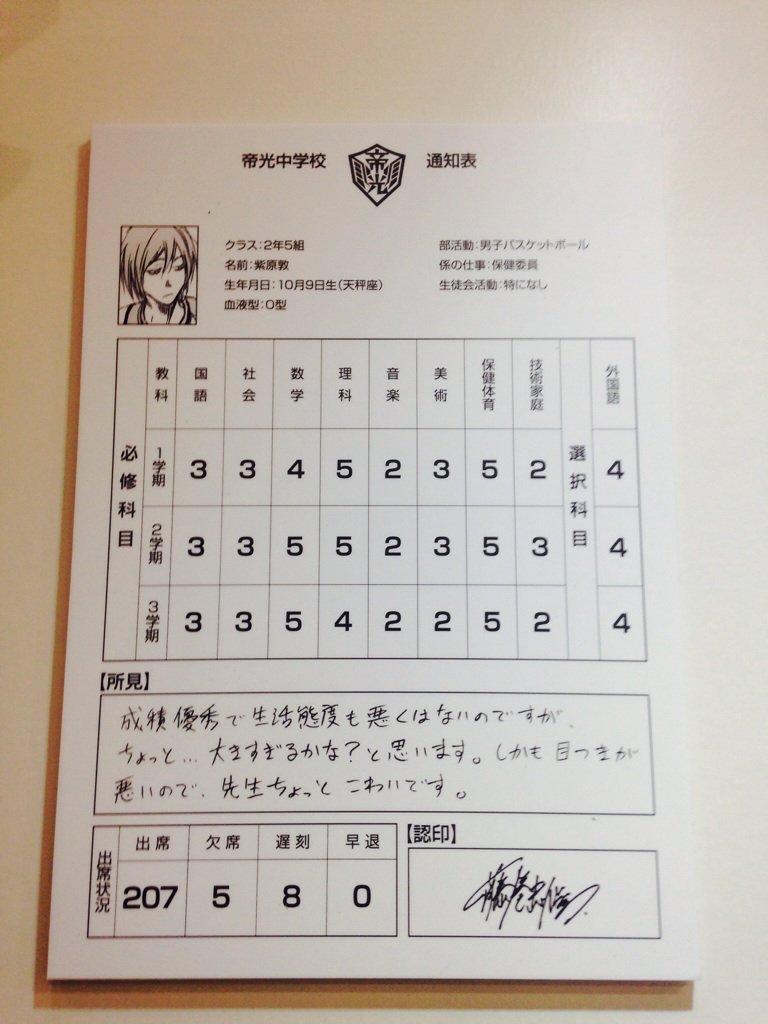 帝光中学校 帝光 通知表
クラス:2年5組
名前:紫原敦
生年月日:10月9日生(天秤座)
血液型:O型
部活動:男子バスケットボール
係の仕事:保健委員
生徒会活動:特になし
必修科目
教科 国語 社会 数学 理科 音楽 美術 保健体育 技術家庭 選択科目 外国語
1学期 3 3 4 5 2 3 5 2 4
2学期 3 3 5 5 2 3 5 3 4
3学期 3 3 5 4 2 2 5 2 4
【所見】
成績優秀で生活態度も悪くはないのですが、
ちょっと…大きすぎるかな?と思います。しかも目つきが
悪いので、先生ちょっとこわいです。
出席状況
出席 欠席 遅刻 早退
207 5 8 0
【認印】
藤巻忠俊